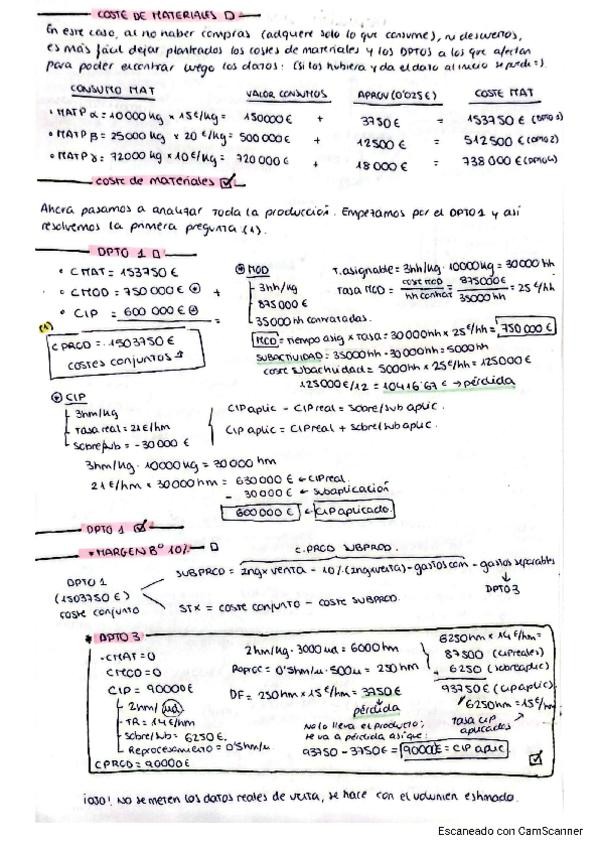 COSTE DE MATERIALES
En este caso, al no haber compras (adquiere solo lo que consume), ni descuentos,
es más fácil dejar planteados los costes de materiales y los DPTOS a los que afectan
para poder encontrar luego los datos: (si los hubiera y da el dato al inicio se puede).
CONSUMO MAT VALOR CONSUMOS APROV (0'025€) COSTE MAT
• MATP α = 10000 kg × 15€/kg = 150000 € + 3750€ = 153750 € (DPTO 1)
• MATP β = 25000 kg × 20 €/kg = 500 000 € + 12500 € = 512 500 € (DPTO 2)
• MATP γ = 72000 kg × 10€/kg = 720 000 € + 18 000 € = 738 000 € (DPTO 4)
coste de materiales
Ahora pasamos a analizar toda la producción. Empezamos por el DPTO 1 y así
resolvemos la primera pregunta (1).
DPTO 1
• CMAT = 153750 €
• CMOD = 750 000 € +
• CIP = 600 000 €
(1)
C PRCD = 1503750 €
costes conjuntos
MOD
3hh/kg
875000 €
35000 hh contratadas.
T. asignable = 3hh/kg · 10000 kg = 30000 hh
Tasa MOD = coste MOD / hh contrat = 875000€ / 35000 hh = 25 €/hh
MOD = tiempo asig × tasa = 30000hh × 25 €/hh = 750 000 €
SUBACTIVIDAD = 35000 hh - 30000 hh = 5000 hh
coste subactividad = 5000 hh × 25 €/hh = 125000 €
125000€/12 = 10416'67 € → pérdida
CIP
3hm/kg
Tasa real = 21€/hm
Sobre/sub = -30000 €
CIP aplic - CIP real = sobre/sub aplic.
CIP aplic = CIP real + sobre/sub aplic.
3hm/kg · 10000 kg = 30000 hm
21 €/hm × 30000 hm = 630000 € ← CIP real
- 30000 € ← subaplicación
600000 € ← CIP aplicado.
DPTO 1
• MARGEN Bº 10%
C. PRCD SUBPROD.
DPTO 1
(1503750 €)
coste conjunto
SUBPROD = Ingxventa - 10% (Ingxventa) - gastos com - gastos separables
DPTO 3
STX = coste conjunto - coste SUBPROD.
DPTO 3
• CMAT = 0
CMOD = 0
CIP = 90000 €
2hm/ud
TR = 14 €/hm
Sobre/sub = 6250 €.
Reprocesamiento = 0'5hm/u
C PRCD = 90000 €
2hm/kg · 3000 ud = 6000 hm
Reproc = 0'5hm/u · 500u = 250 hm
DF = 250 hm × 15 €/hm = 3750 €
pérdida
No lo lleva el producto;
se va a pérdida así que:
93750 - 3750€ = 90000€ = CIP aplic
6250hm × 14 €/hm =
87500 (CIP reales)
+ 6250 (sobreaplic)
93750 € (CIP aplic)
6250hm = 15€/hm
Tasa CIP
aplicados
¡ojo! No se meten los datos reales de venta, se hace con el volumen estimado.
Escaneado con CamScanner